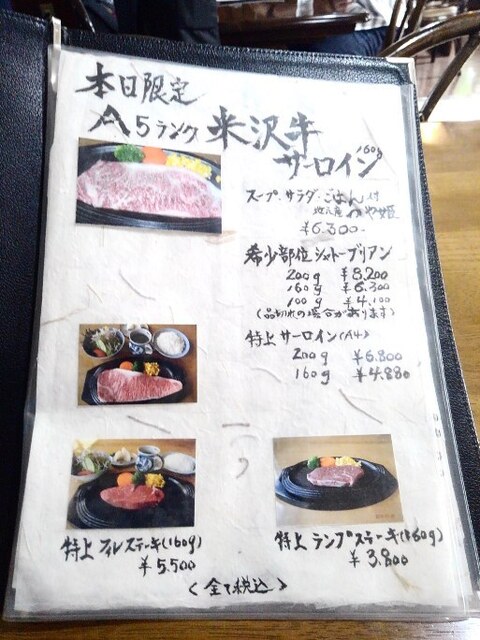 本日限定
A5ランク 米沢牛
サーロイン 160g
スープ・サラダ・ごはん付
や姫
¥6.300-
希少部位シャトーブリアン
200g ¥8.200
160g ¥6.300
100g ¥4.100
(品切れの場合があります)
特上 サーロイン(A4)
200g ¥6.800
160g ¥4.880
特上 フィレステーキ(160g)
¥5.500
特上 ランプステーキ(160g)
¥3.800
<全て税込>